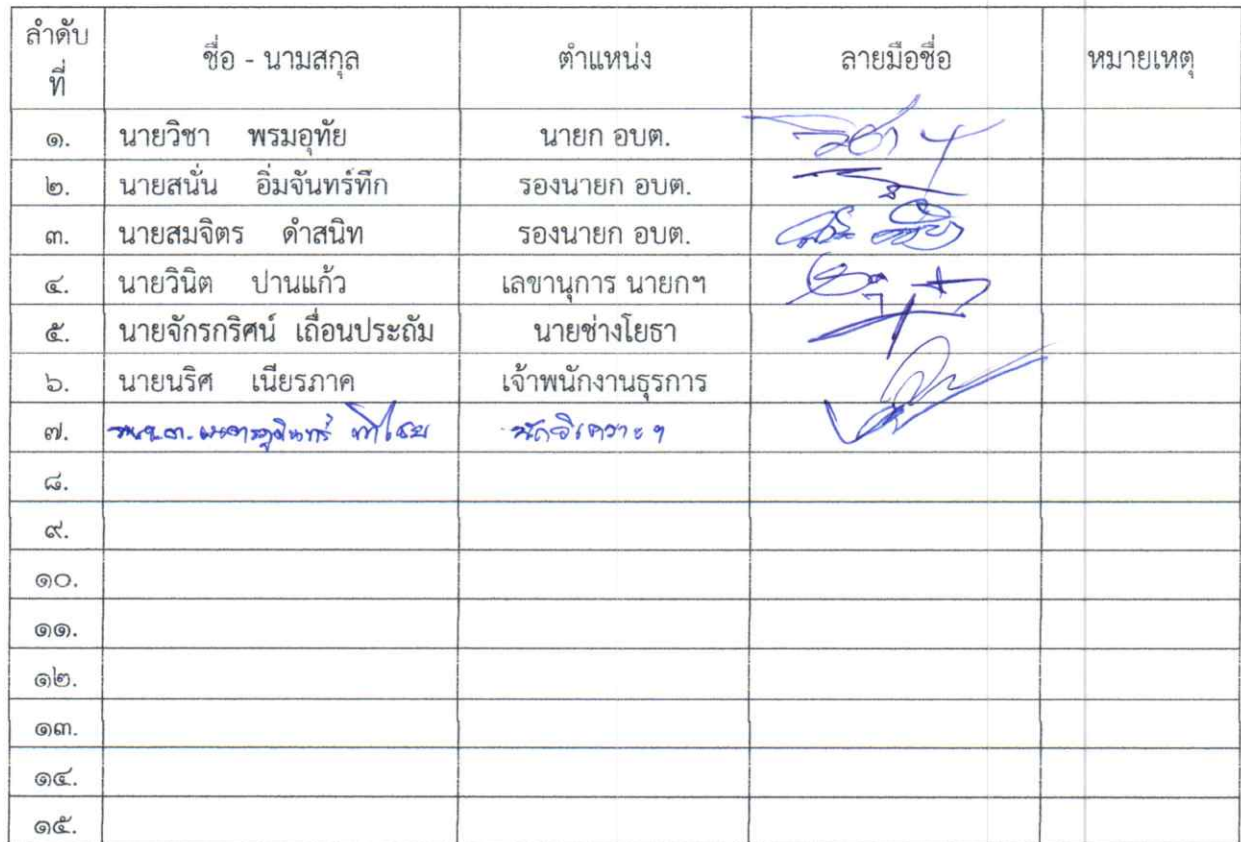 ลำดับ
ที่
ชื่อ - นามสกุล ตำแหน่ง ลายมือชื่อ หมายเหตุ
๑. นายวิชา พรมอุทัย นายก อบต.
๒. นายสนั่น อิ่มจันทร์ทึก รองนายก อบต.
๓. นายสมจิตร ดำสนิท รองนายก อบต.
๔. นายวินิต ปานแก้ว เลขานุการ นายกฯ
๕. นายจักรกริศน์ เถื่อนประถัม นายช่างโยธา
๖. นายนริศ เนียรภาค เจ้าพนักงานธุรการ
๗. นักวิเคราะห์ฯ
๘.
๙.
๑๐.
๑๑.
๑๒.
๑๓.
๑๔.
๑๕.